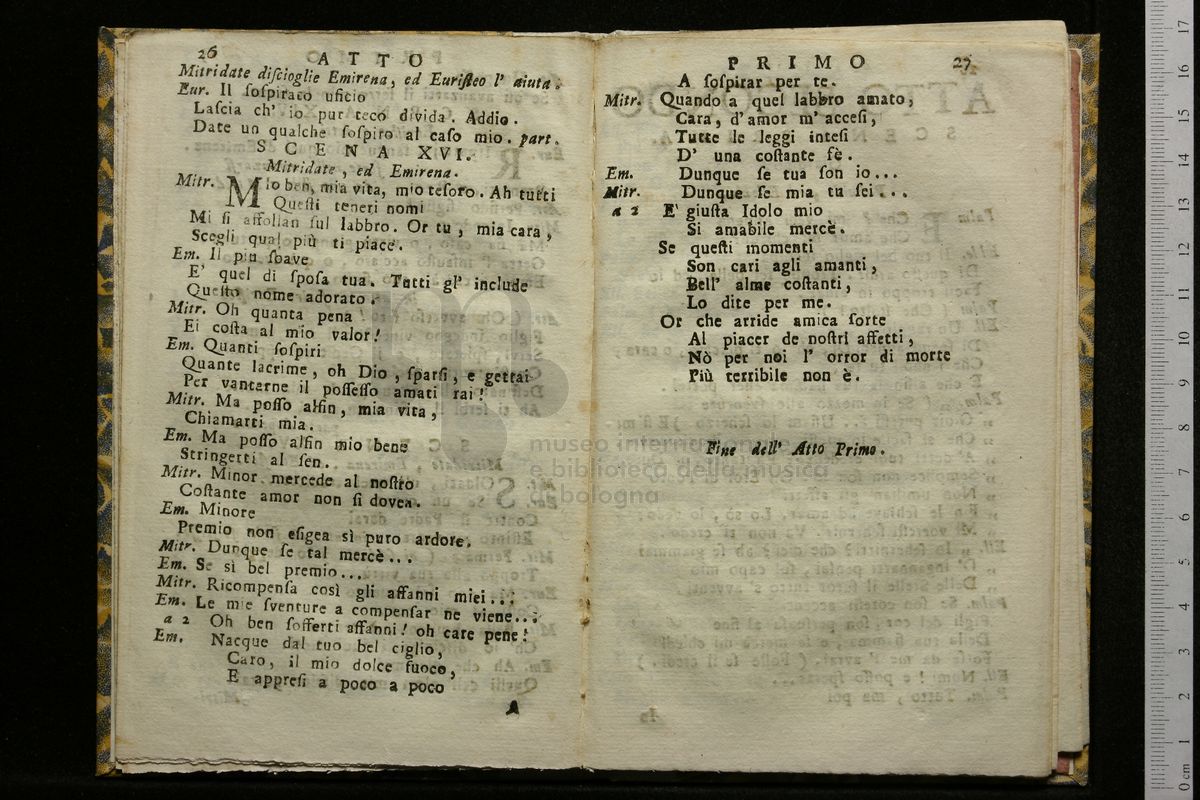 26
ATTO
Mitridate diſcioglie Emirena, ed Euriſteo l' aiuta.
Eur. Il ſoſpirato uficio
Laſcia ch' io pur teco divida. Addio.
Date un qualche ſoſpiro al caſo mio. part.
SCENA XVI.
Mitridate, ed Emirena.
Mitr. MIo ben, mia vita, mio teſoro. Ah tutti
Queſti teneri nomi
Mi ſi affollan ſul labbro. Or tu, mia cara,
Scegli qual più ti piace.
Em. Il più ſoave
E' quel di ſpoſa tua. Tutti gl' include
Queſto nome adorato.
Mitr. Oh quanta pena
Ei coſta al mio valor!
Em. Quanti ſoſpiri
Quante lacrime, oh Dio, ſparſi, e gettai
Per vantarne il poſſeſſo amati rai!
Mitr. Ma poſſo alfin, mia vita,
Chiamarti mia.
Em. Ma poſſo alfin mio bene
Stringerti al ſen.
Mitr. Minor mercede al noſtro
Coſtante amor non ſi dovea.
Em. Minore
Premio non eſigea sì puro ardore.
Mitr. Dunque ſe tal mercè...
Em. Se sì bel premio...
Mitr. Ricompenſa così gli affanni miei...
Em. Le mie ſventure a compenſar ne viene...
a 2 Oh ben ſofferti affanni! oh care pene!
Em. Nacque dal tuo bel ciglio,
Caro, il mio dolce fuoco,
E appreſi a poco a poco
A
PRIMO
27
A ſoſpirar per te.
Mitr. Quando a quel labbro amato,
Cara, d'amor m' acceſi,
Tutte le leggi inteſi
D' una coſtante fè.
Em. Dunque ſe tua ſon io...
Mitr. Dunque ſe mia tu ſei...
a 2 E' giuſta Idolo mio
Sì amabile mercè.
Se queſti momenti
Son cari agli amanti,
Bell' alme coſtanti,
Lo dite per me.
Or che arride amica ſorte
Al piacer de noſtri affetti,
Nò per noi l' orror di morte
Più terribile non è.
Fine dell' Atto Primo.
museo internazionale
e biblioteca della musica
di bologna